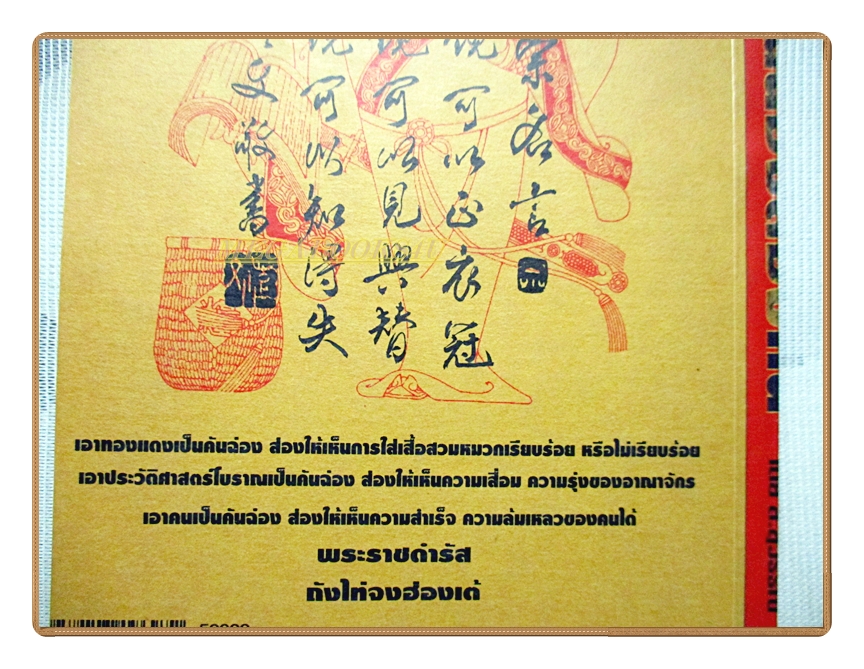 名言
可以正衣冠
可以見興替
可以知得失
文敬書
เอาทองแดงเป็นคันฉ่อง ส่องให้เห็นการใส่เสื้อสวมหมวกเรียบร้อย หรือไม่เรียบร้อย
เอาประวัติศาสตร์โบราณเป็นคันฉ่อง ส่องให้เห็นความเสื่อม ความรุ่งของอาณาจักร
เอาคนเป็นคันฉ่อง ส่องให้เห็นความสำเร็จ ความล้มเหลวของคนได้
พระราชดำรัส
ถังไท่จงฮ่องเต้